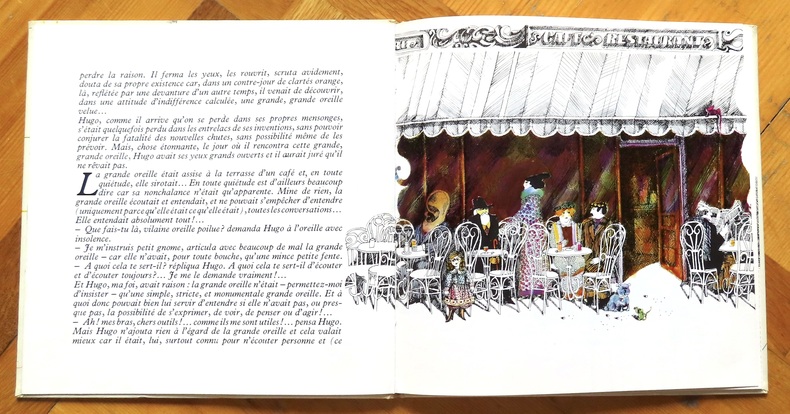 perdre la raison. Il ferma les yeux, les rouvrit, scruta avidement,
douta de sa propre existence car, dans un contre-jour de clartés orange,
là, reflétée par une devanture d'un autre temps, il venait de découvrir,
dans une attitude d'indifférence calculée, une grande, grande oreille
velue...
Hugo, comme il arrive qu'on se perde dans ses propres mensonges,
s'était quelquefois perdu dans les entrelacs de ses inventions, sans pouvoir
conjurer la fatalité des nouvelles chutes, sans possibilité même de les
prévoir. Mais, chose étonnante, le jour où il rencontra cette grande,
grande oreille, Hugo avait ses yeux grands ouverts et il aurait juré qu'il
ne rêvait pas.
La grande oreille était assise à la terrasse d'un café et, en toute
quiétude, elle sirotait... En toute quiétude est d'ailleurs beaucoup
dire car sa nonchalance n'était qu'apparente. Mine de rien, la
grande oreille écoutait et entendait, et ne pouvait s'empêcher d'entendre
(uniquement parce qu'elle était ce qu'elle était), toutes les conversations...
Elle entendait absolument tout!...
– Que fais-tu là, vilaine oreille poilue? demanda Hugo à l'oreille avec
insolence.
– Je m'instruis petit gnome, articula avec beaucoup de mal la grande
oreille – car elle n'avait, pour toute bouche, qu'une mince petite fente.
– A quoi cela te sert-il? répliqua Hugo. A quoi cela te sert-il d'écouter
et d'écouter toujours?... Je me le demande vraiment!...
Et Hugo, ma foi, avait raison : la grande oreille n'était – permettez-moi
d'insister – qu'une simple, stricte, et monumentale grande oreille. Et à
quoi donc pouvait bien lui servir d'entendre si elle n'avait pas, ou pres-
que pas, la possibilité de s'exprimer, de voir, de penser ou d'agir!...
– Ah! mes bras, chers outils!... comme ils me sont utiles!... pensa Hugo.
Mais Hugo n'ajouta rien à l'égard de la grande oreille et cela valait
mieux car il était, lui, surtout connu pour n'écouter personne et (ce
CAFE RESTAURANT